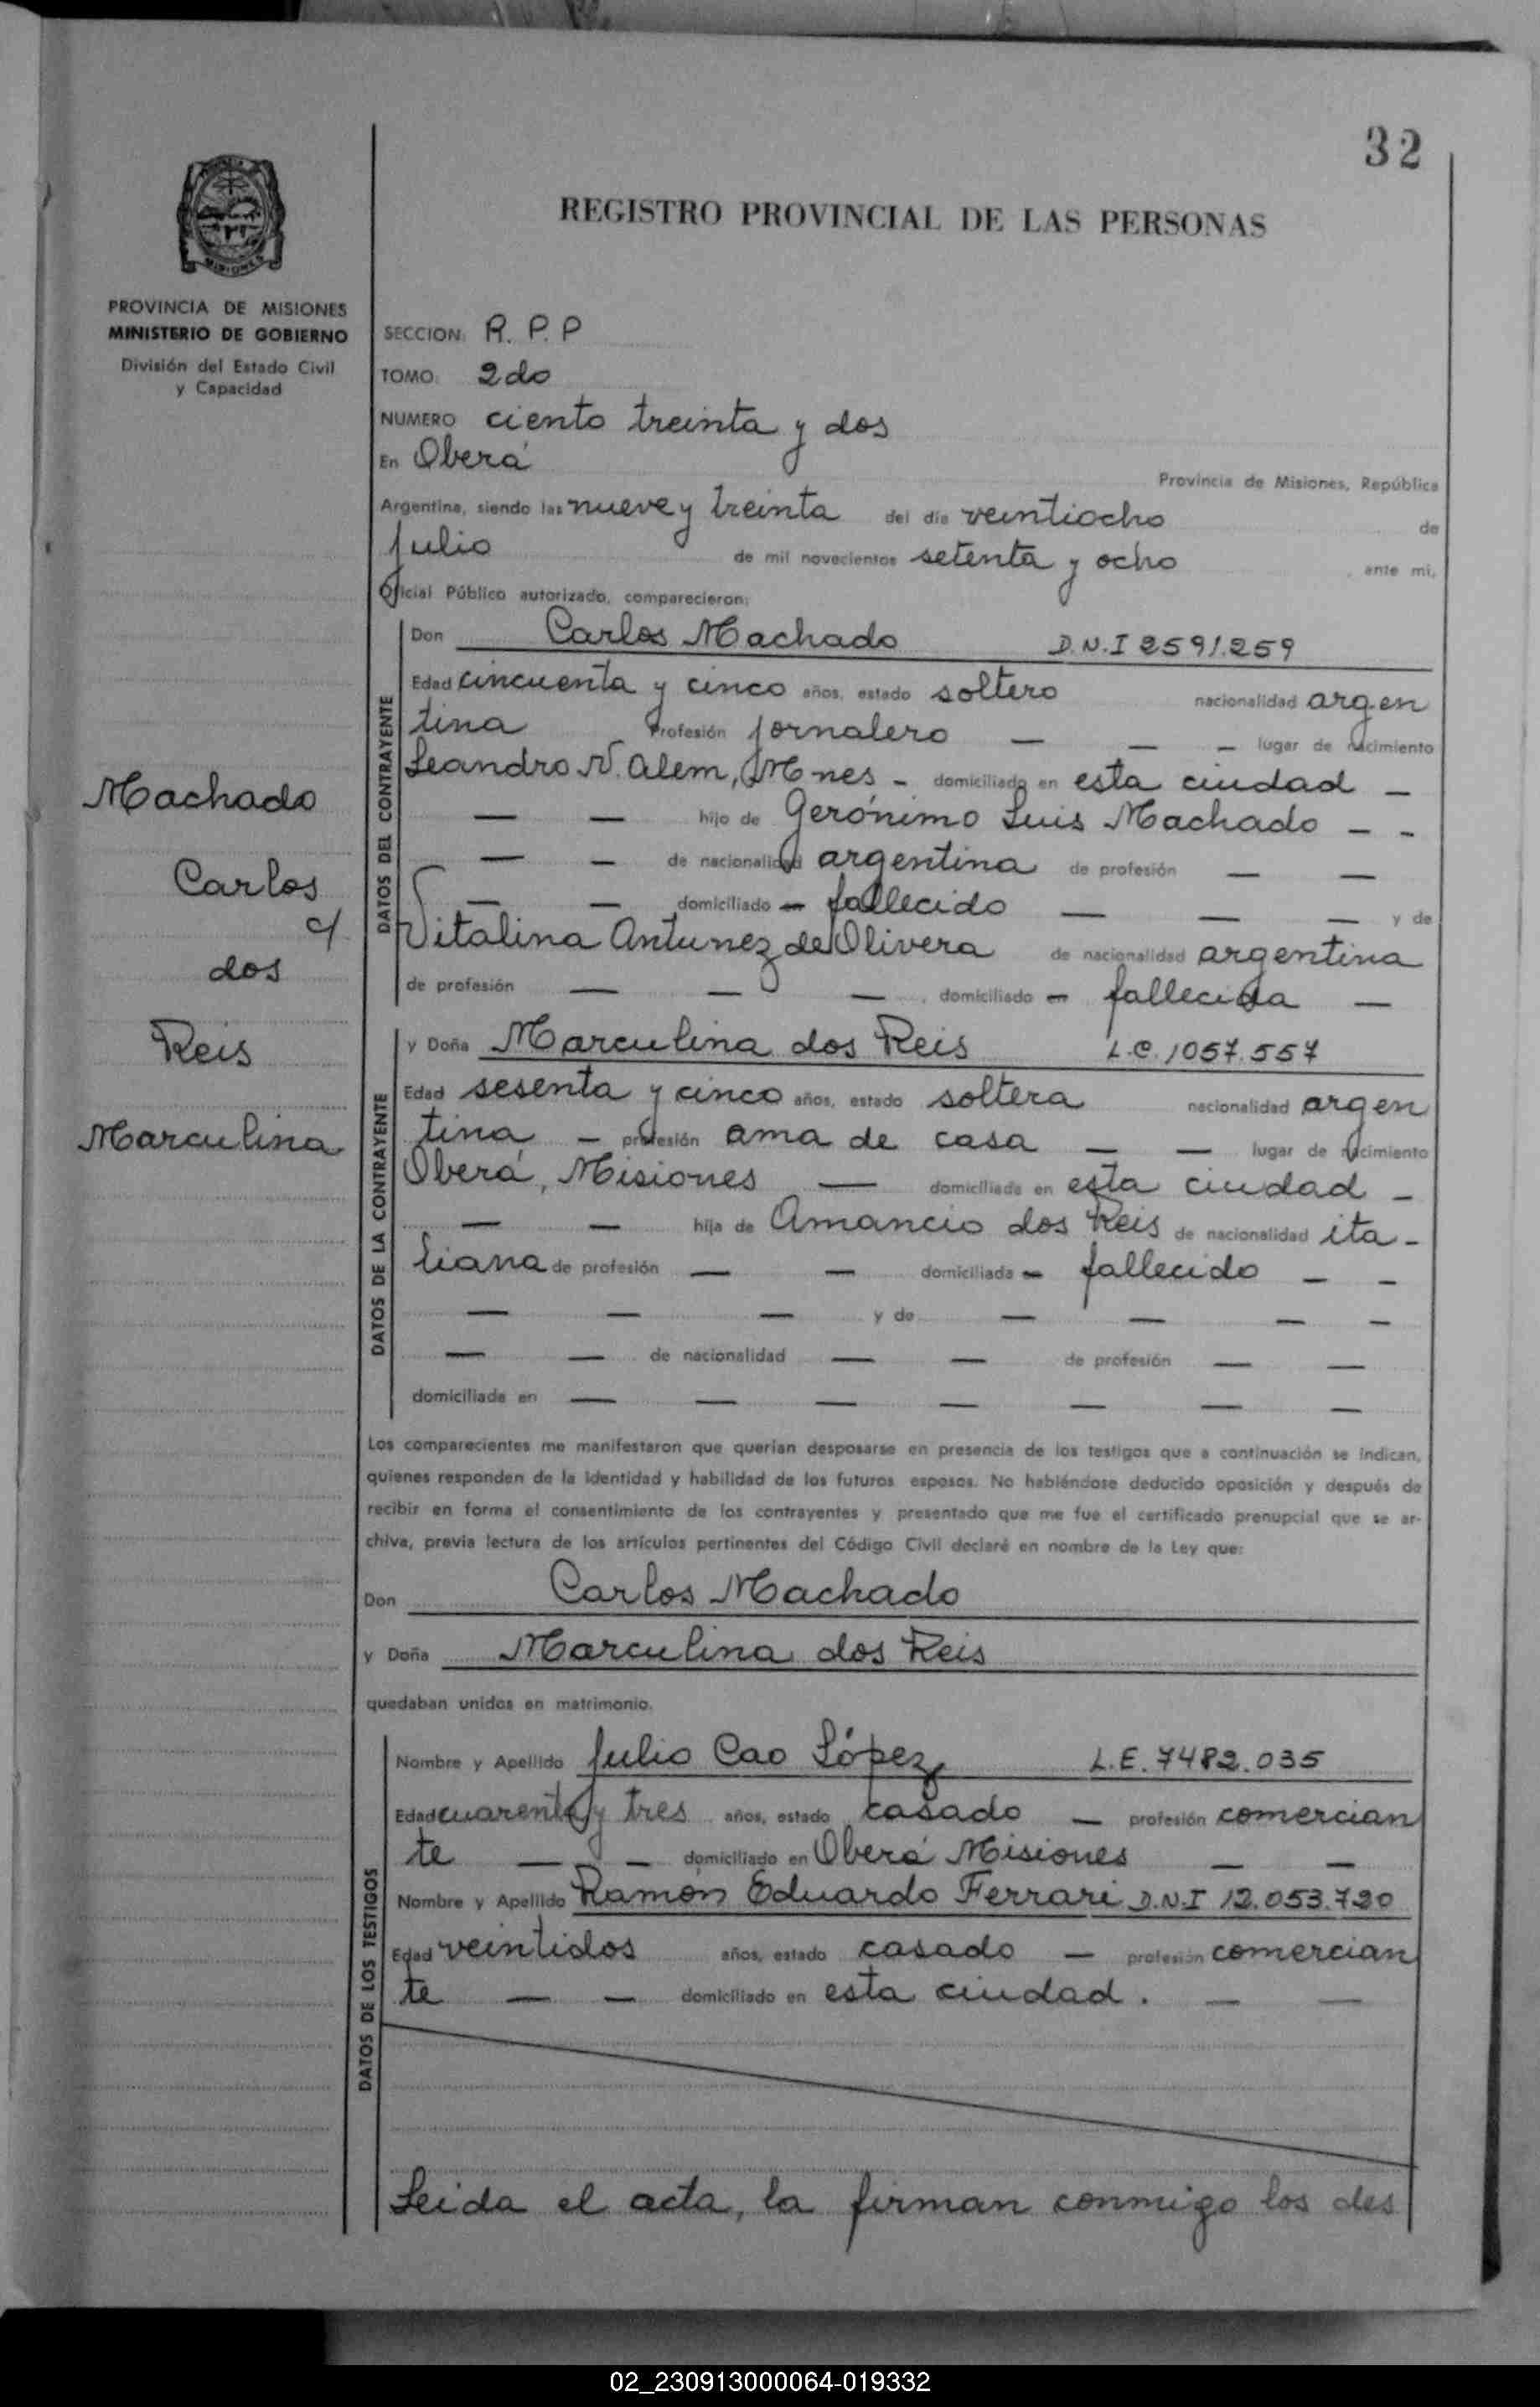 32
REGISTRO PROVINCIAL DE LAS PERSONAS
MISIONES
PROVINCIA DE MISIONES
MINISTERIO DE GOBIERNO
División del Estado Civil
y Capacidad
SECCION: R. P. P
TOMO: 2do
NUMERO ciento treinta y dos
En Oberá
Provincia de Misiones, República
Argentina, siendo las nueve y treinta del día veintiocho de
julio de mil novecientos setenta y ocho, ante mi,
Oficial Público autorizado, comparecieron:
Machado
Carlos
c/
dos
Reis
Marculina
DATOS DEL CONTRAYENTE
Don Carlos Machado D.N.I 2591.259
Edad cincuenta y cinco años, estado soltero nacionalidad argen
tina Profesión jornalero — — — lugar de nacimiento
Leandro N. Alem, Mnes - domiciliado en esta ciudad —
— — hijo de Gerónimo Luis Machado — -
— — de nacionalidad argentina de profesión — —
— — domiciliado — fallecido — — — y de
Vitalina Antunez de Olivera de nacionalidad argentina
de profesión — — — , domiciliado — fallecida —
DATOS DE LA CONTRAYENTE
y Doña Marculina dos Reis L.C. 1057.557
Edad sesenta y cinco años, estado soltera nacionalidad argen
tina — profesión ama de casa — — lugar de nacimiento
Oberá, Misiones — domiciliada en esta ciudad —
— — hija de Amancio dos Reis de nacionalidad ita-
liana de profesión — — domiciliada — fallecido — -
— — — y de — — — —
— — de nacionalidad — — de profesión — —
domiciliada en — — — — — — —
Los comparecientes me manifestaron que querían desposarse en presencia de los testigos que a continuación se indican,
quienes responden de la identidad y habilidad de los futuros esposos. No habiéndose deducido oposición y después de
recibir en forma el consentimiento de los contrayentes y presentado que me fue el certificado prenupcial que se ar-
chiva, previa lectura de los artículos pertinentes del Código Civil declaré en nombre de la Ley que:
Don Carlos Machado
y Doña Marculina dos Reis
quedaban unidos en matrimonio.
DATOS DE LOS TESTIGOS
Nombre y Apellido Julio Cao López L.E. 7482.035
Edad cuarenta y tres años, estado casado — profesión comercian
te — — domiciliado en Oberá Misiones — —
Nombre y Apellido Ramón Eduardo Ferrari D.N.I 12.053.720
Edad veintidos años, estado casado — profesión comercian
te — — domiciliado en esta ciudad. — —
Leida el acta, la firman conmigo los des
02_230913000064-019332